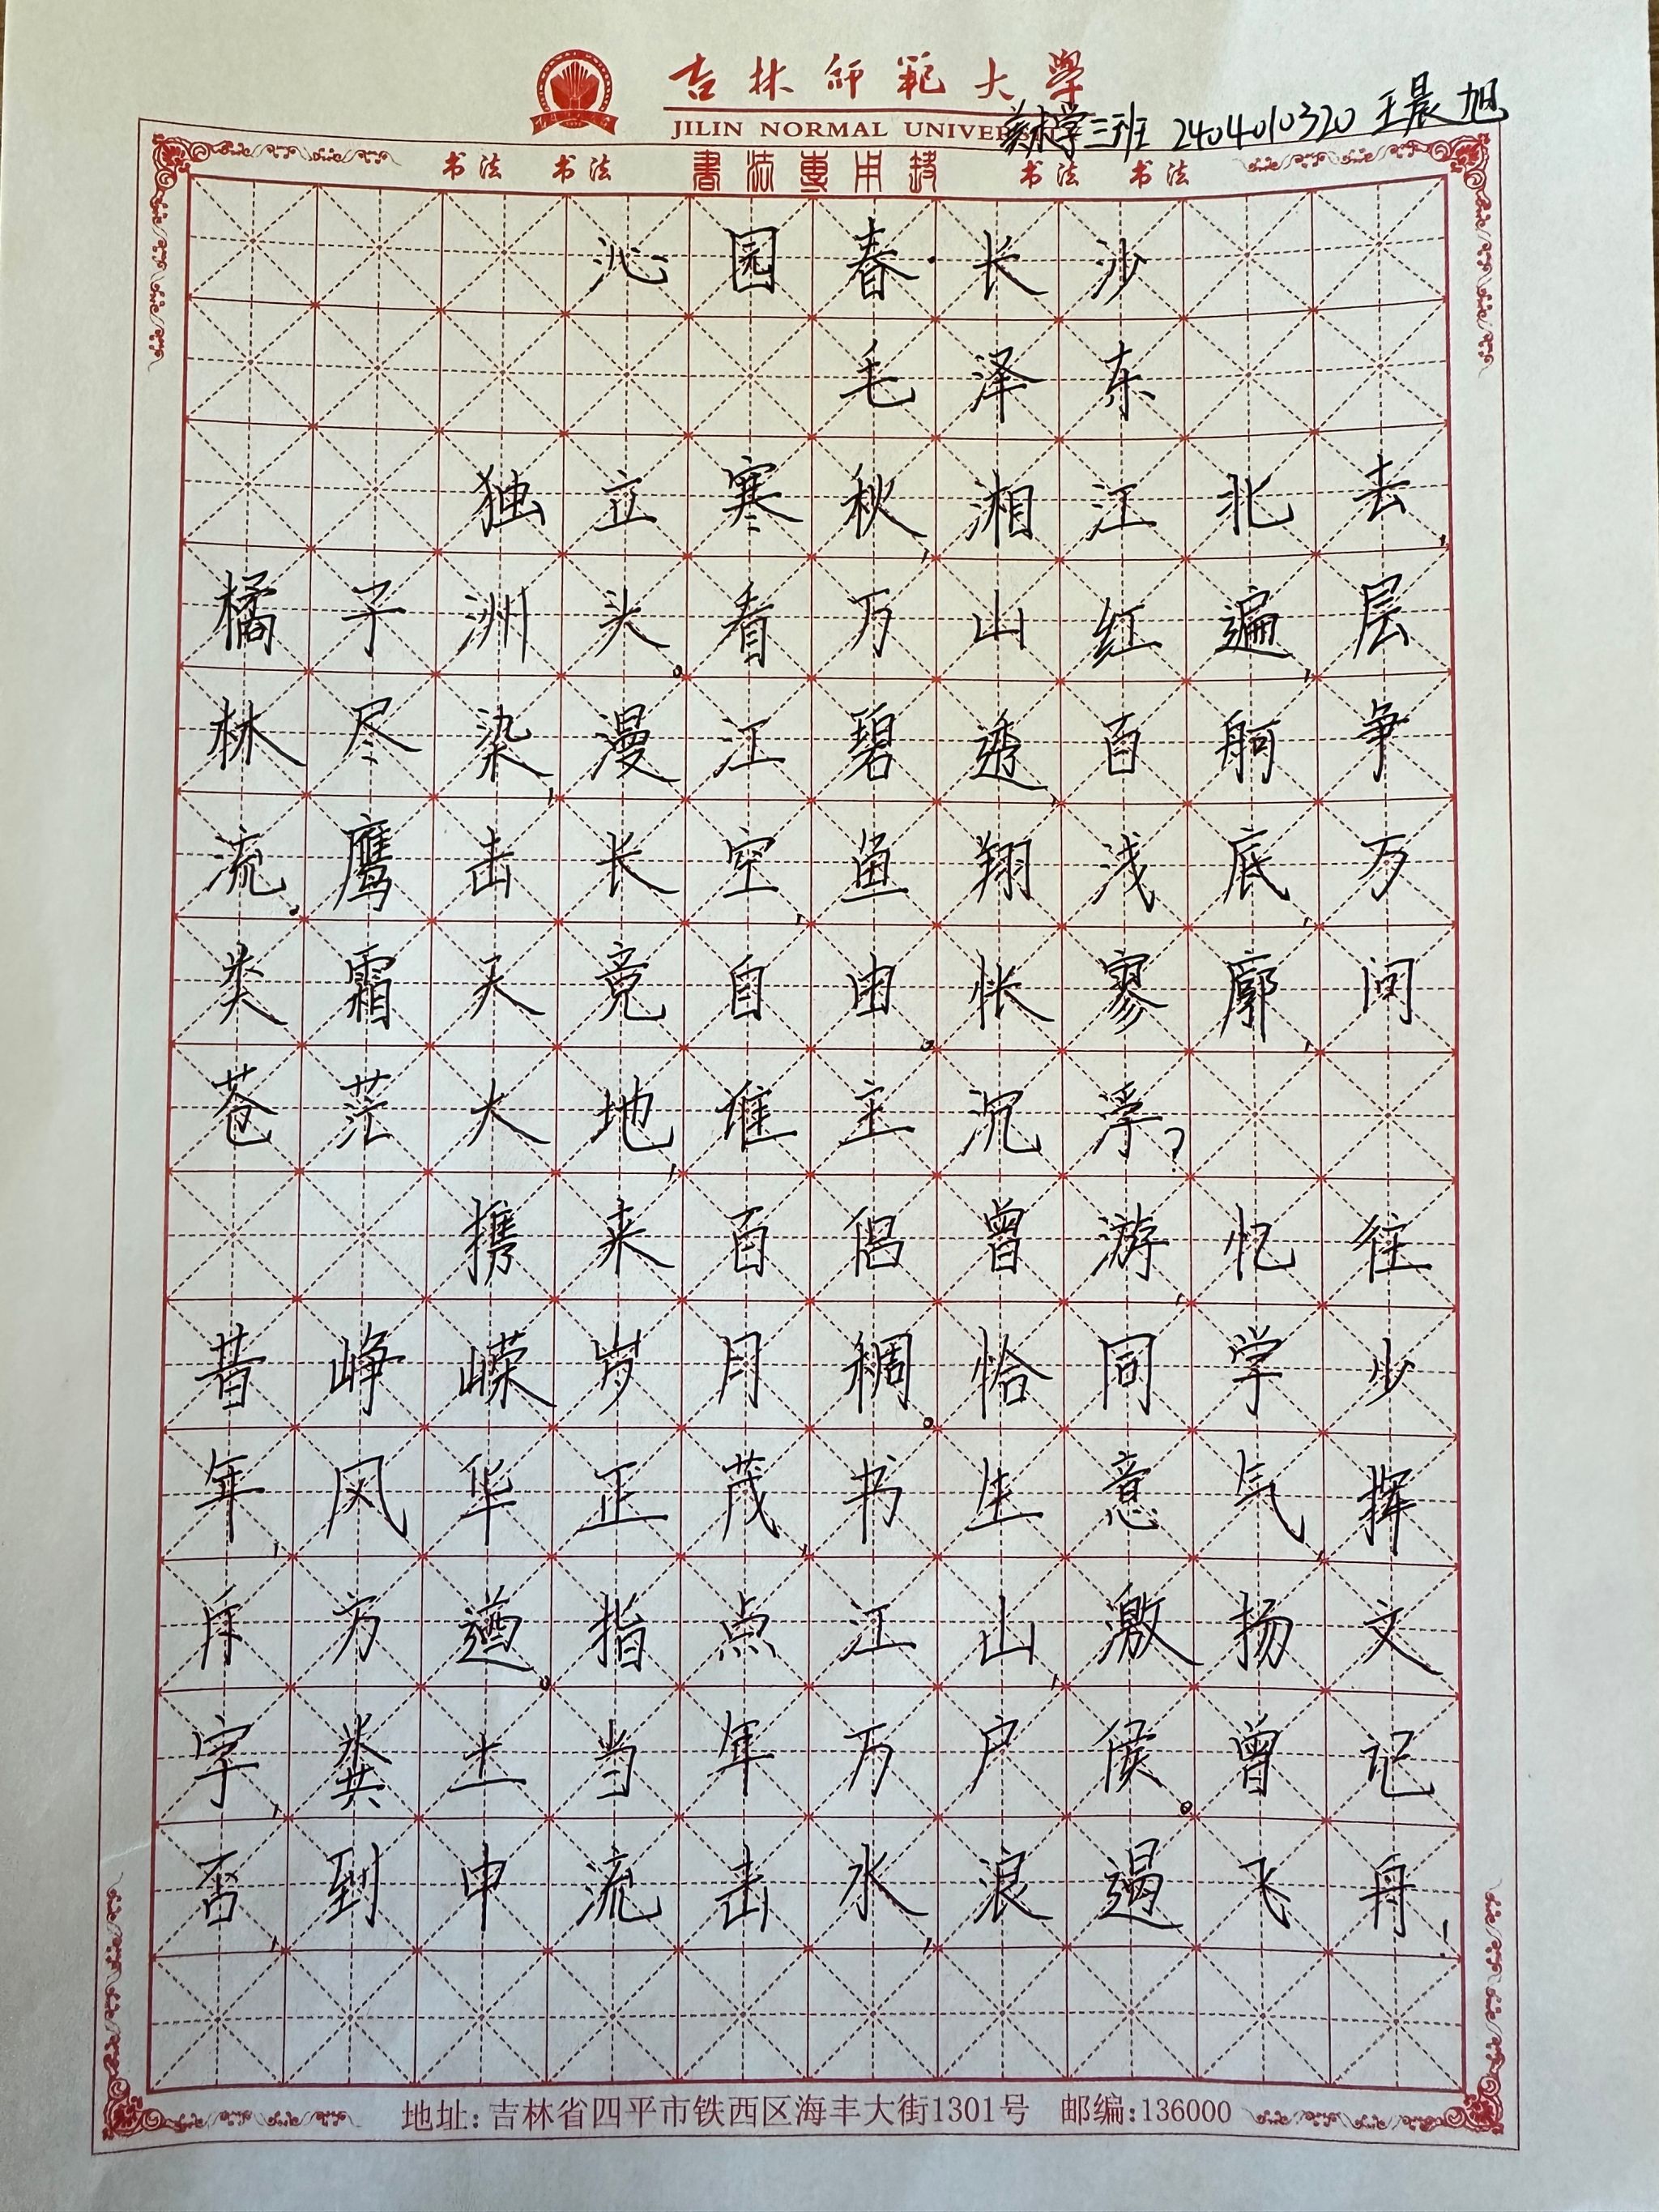 吉林师范大学
JILIN NORMAL UNIVERSITY
美术学三班 2404010320 王晨旭
书法 书法 書法專用紙 书法 书法
沁园春·长沙
毛泽东
独立寒秋,湘江北去,
橘子洲头。看万山红遍,层
林尽染,漫江碧透,百舸争
流。鹰击长空,鱼翔浅底,万
类霜天竟自由。怅寥廓,问
苍茫大地,谁主沉浮?
携来百侣曾游,忆往
昔峥嵘岁月稠。恰同学少
年,风华正茂,书生意气,挥
斥方遒。指点江山,激扬文
字,粪土当年万户侯。曾记
否,到中流击水,浪遏飞舟!
地址:吉林省四平市铁西区海丰大街1301号 邮编:136000